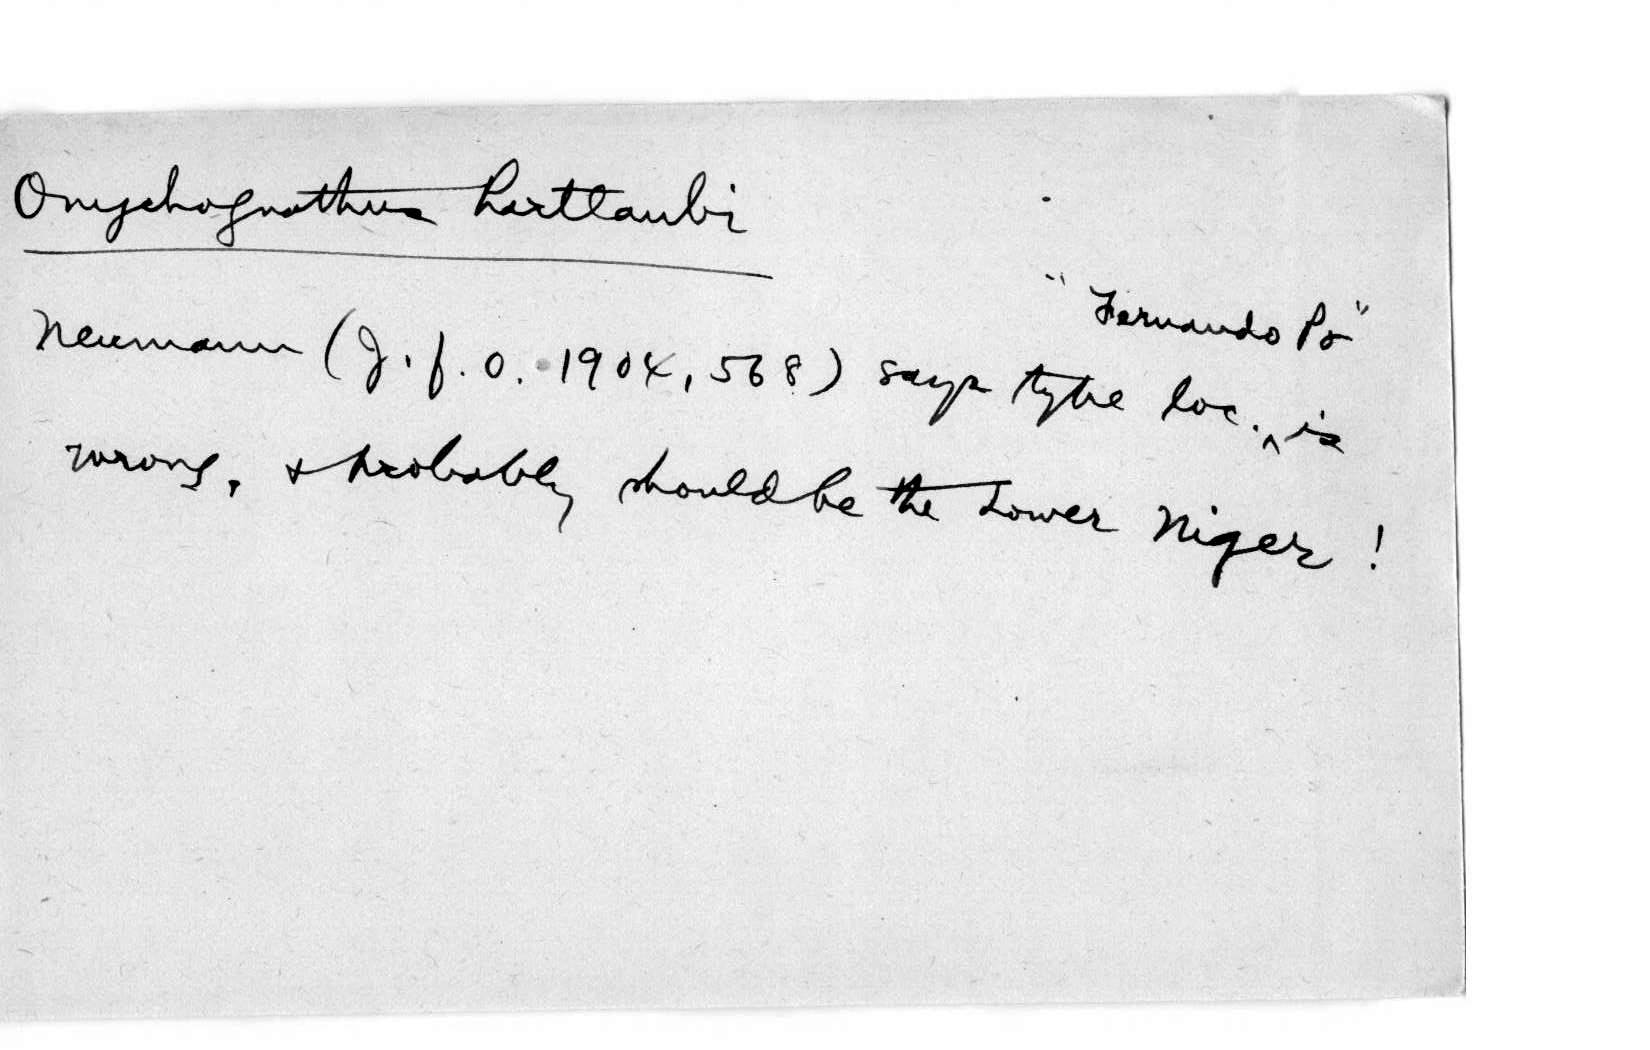 Onychognathus hartlaubi
"Fernando Po"
Neumann (J. f. O. 1904, 568) says type loc. ^ is
wrong, & probably should be the Lower Niger!